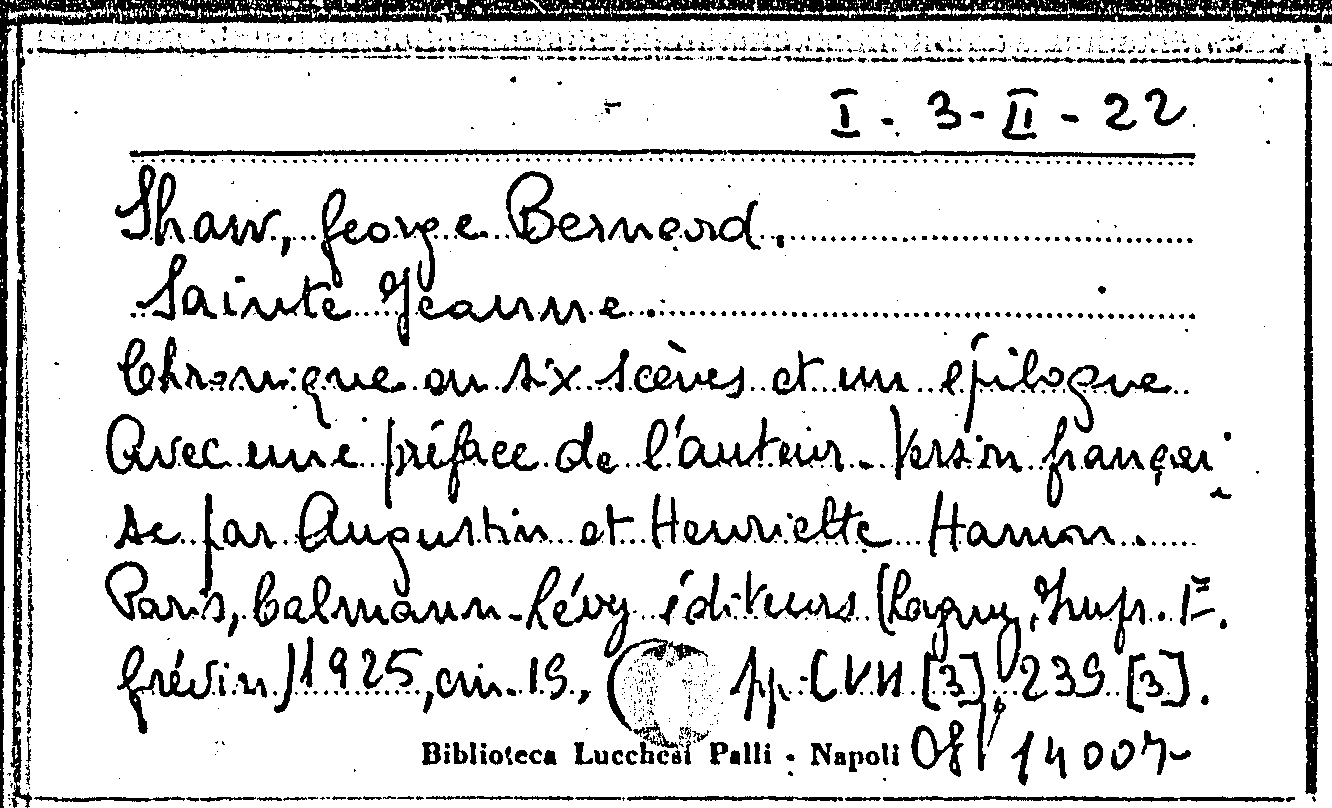 I - 3 - II - 22
Shaw, George Bernard.
Sainte Jeanne.
Chronique en six scènes et un épilogue
Avec une préface de l'auteur. Version françai
se par Augustin et Henriette Hamon.
Paris, Calmann-Lévy éditeurs (Lagny, Impr. E.
Grévin) 1925, cm. 19, pp. CVII [3], 239 [3].
Biblioteca Lucchesi Palli - Napoli 14007